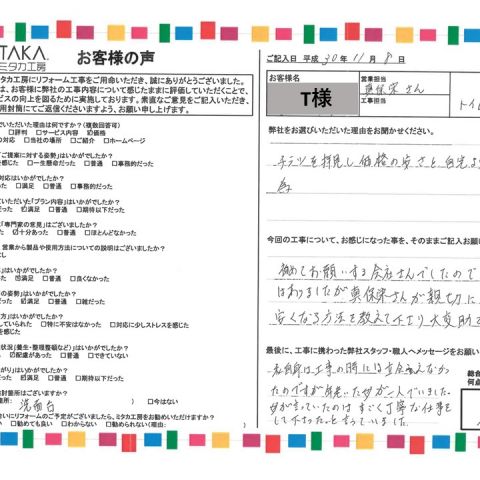 ITAKA
ミタカ工房
お客様の声
タカ工房にリフォーム工事をご用命いただき、誠にありがとうございました。
は、お客様に弊社の工事内容について感じたままに評価していただくことで、
ビスの向上を図るために実施しております。素直なご意見をご記入いただき、
用封筒にてご返信くださいますよう、お願い申し上げます。
でいただいた理由は何ですか?(複数回答可)
□評判 □サービス内容 ☑価格
の対応 □当社の場所 □ご紹介 □ホームページ
「ご提案に対する姿勢」はいかがでしたか?
を感じた □一生懸命だった □普通 □事務的だった
対応はいかがでしたか?
った □満足 □普通 □事務的だった
ていただいた「プラン内容」はいかがでしたか?
った ☑満足 □普通 □期待以下だった
「専門家の意見」はございましたか?
た ☑十分あった □普通 □ほとんどなかった
営業から製品や使用方法についての説明はございましたか?
なし
」はいかがでしたか?
った □満足 □普通 □良くなかった
の姿勢」はいかがでしたか?
だった ☑満足 □普通 □雑だった
方」はいかがでしたか?
していられた □特に不安はなかった □対応に少しストレスを感じた
を感じた
状況(養生・整理整頓など)」はいかがでしたか?
た ☑配慮があった □できていない
がり」はいかがでしたか?
った ☑満足 □普通 □期待以下だった
討箇所はございますか?
箇所: 洗面台 ) □今はない
合いにリフォームのご予定がございましたら、ミタカ工房をお勧めいただけますか?
い □勧めても良い □わからない □勧められない(理由:
ご記入日 平成 30年 11月 8日
お客様名
T様
営業担当
真保栄さん
工事担当
トイレ
弊社をお選びいただいた理由をお聞かせください。
チラシを拝見し価格の安さと自宅よ
為
今回の工事について、お感じになった事を、そのままご記入お願
初めてお願いする会社さんでしたので
はありましたが真保栄さんが親切に
安くなる方法を教えて下さり大変助
最後に、工事に携わった弊社スタッフ・職人へメッセージをお願い
私自身は工事の時には立会えなかっ
たのですが
すごく丁寧な仕事を
して下さったと言っていました。
総合
何点